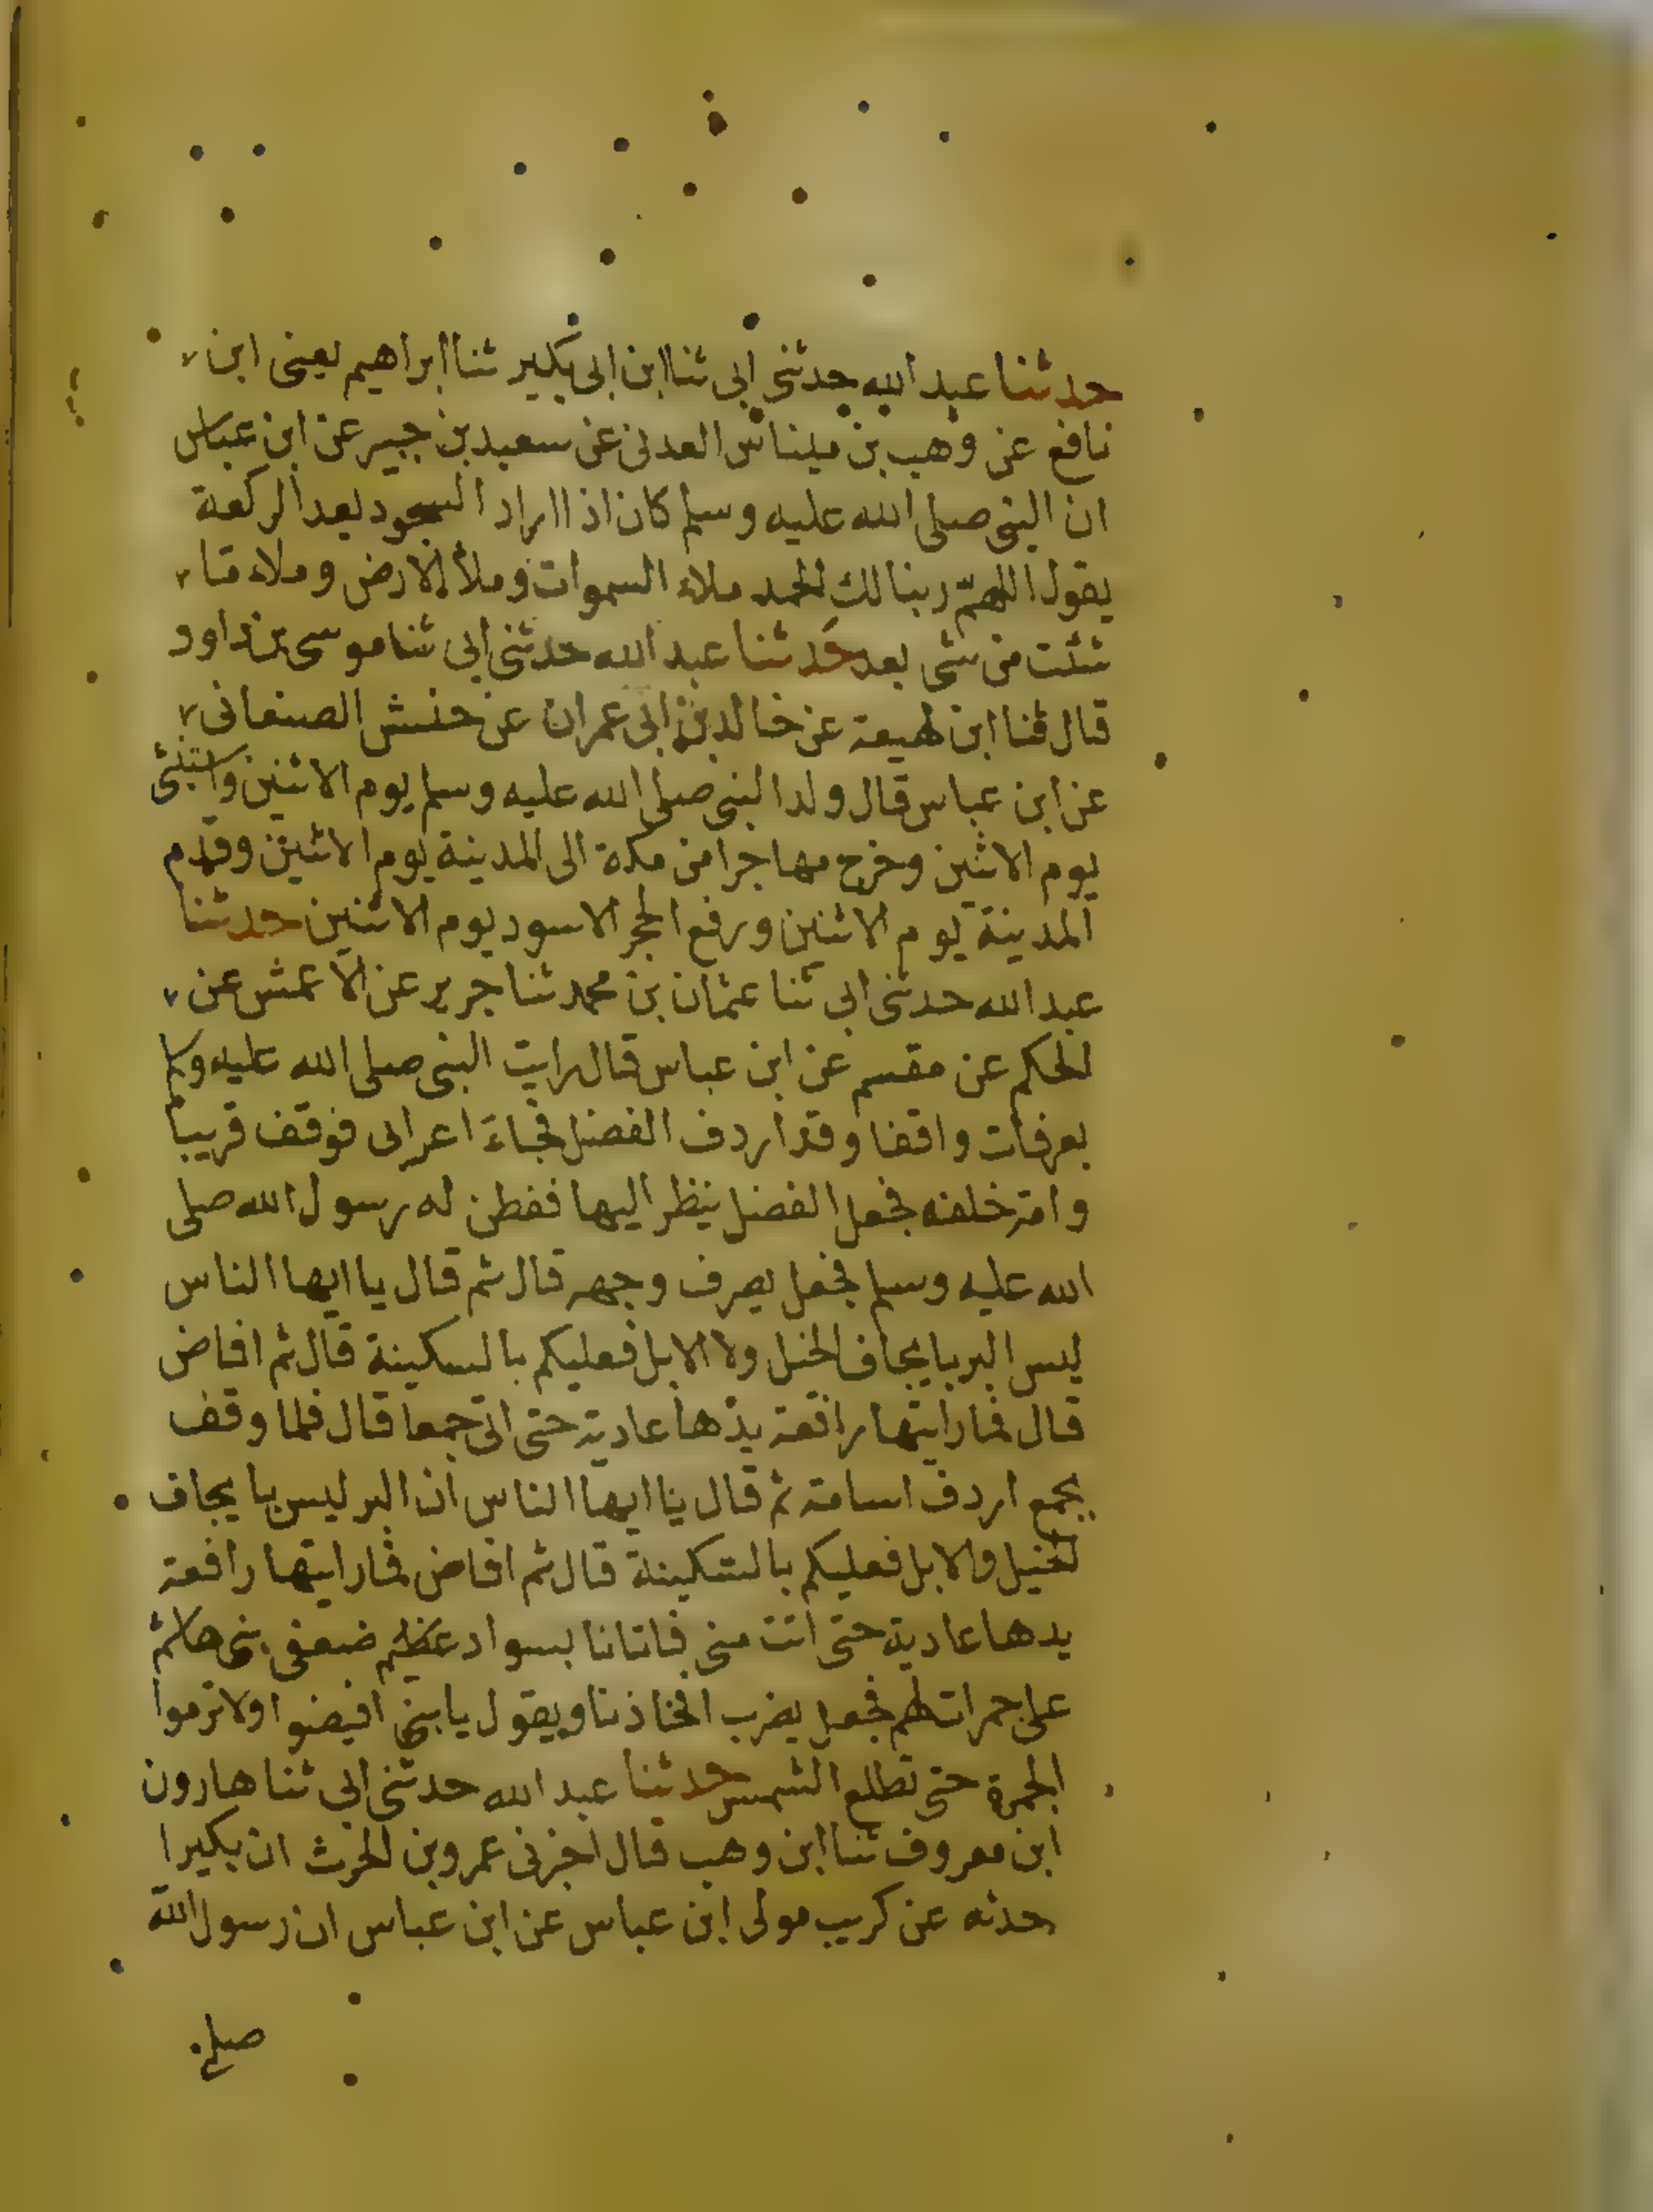 حدثنا عبد الله حدثني ابي ثنا ابن ابي بكير ثنا ابراهيم يعني ابن
نافع عن وهب بن ميناس العدني عن سعيد بن جبير عن ابن عباس
ان النبي صلى الله عليه وسلم كان اذا اراد السجود بعد الركعة
يقول اللهمّ ربنا لك الحمد ملاء السموات وملأ الارض وملاء ما
شئت من شي بعد حدثنا عبد الله حدثني ابي ثنا موسى بن داود
قال ثنا ابن لهيعة عن خالد بن ابي عمران عن حنش الصنعاني
عن ابن عباس قال ولد النبي صلى الله عليه وسلم يوم الاثنين واستنبئ
يوم الاثنين وخرج مهاجرا من مكة الى المدينة يوم الاثنين وقدم
المدينة يوم الاثنين ورفع الحجر الاسود يوم الاثنين حدثنا
عبد الله حدثني ابي ثنا عثمان بن محمد ثنا جرير عن الاعمش عن
الحكم عن مقسم عن ابن عباس قال رايت النبي صلى الله عليه وسلم
بعرفات واقفا وقد اردف الفضل فجاء اعرابي فوقف قريبا
وامة خلفه فجعل الفضل ينظر اليها ففطن له رسول الله صلى
الله عليه وسلم فجعل يصرف وجهه قال ثم قال يا ايها الناس
ليس البر بايجاف الخيل ولا الابل فعليكم بالسكينة قال ثم افاض
قال فما رايتها رافعة يدها عادية حتى اتى جمعا قال فلما وقف
بجمع اردف اسامة ثم قال يا ايها الناس ان البر ليس بايجاف
الخيل والابل فعليكم بالسكينة قال ثم افاض فما رايتها رافعة
يدها عادية حتى اتت منى فاتانا بسواد عظيم ضعفى بني هاشم
على حمرات لهم فجعل يضرب افخاذنا ويقول يا بني افيضوا ولا ترموا
الجمرة حتى تطلع الشمس حدثنا عبد الله حدثني ابي ثنا هارون
ابن معروف ثنا ابن وهب قال اخبرني عمرو بن الحرث ان بكيرا
حدثه عن كريب مولى ابن عباس عن ابن عباس ان رسول الله
صلى